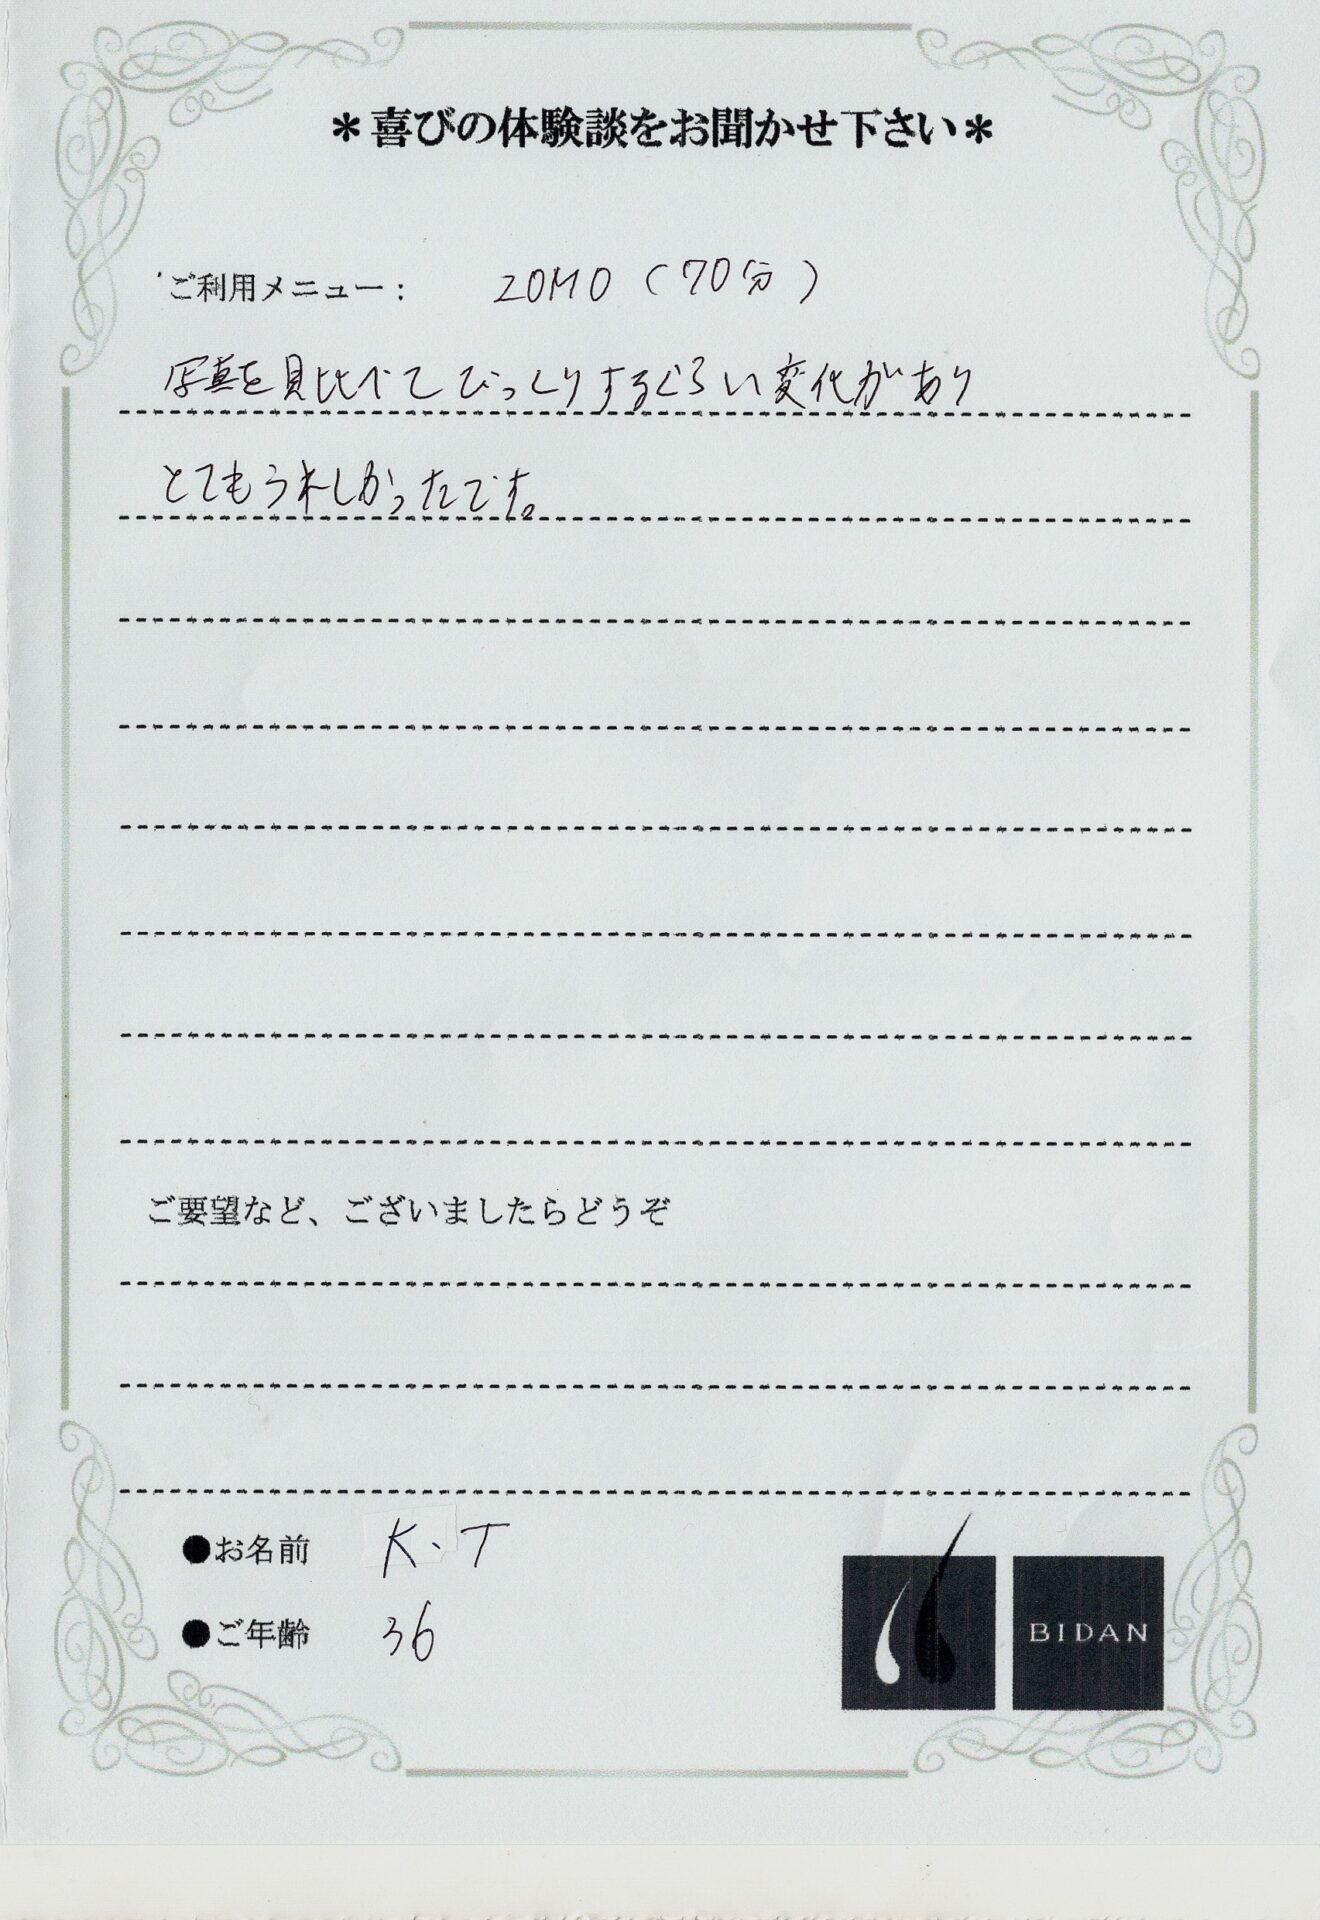 ＊喜びの体験談をお聞かせ下さい＊
ご利用メニュー： ZOMO（70分）
写真を見比べてびっくりするぐらい変化があり
とてもうれしかったです。
ご要望など、ございましたらどうぞ
●お名前 K、T
●ご年齢 36
BIDAN